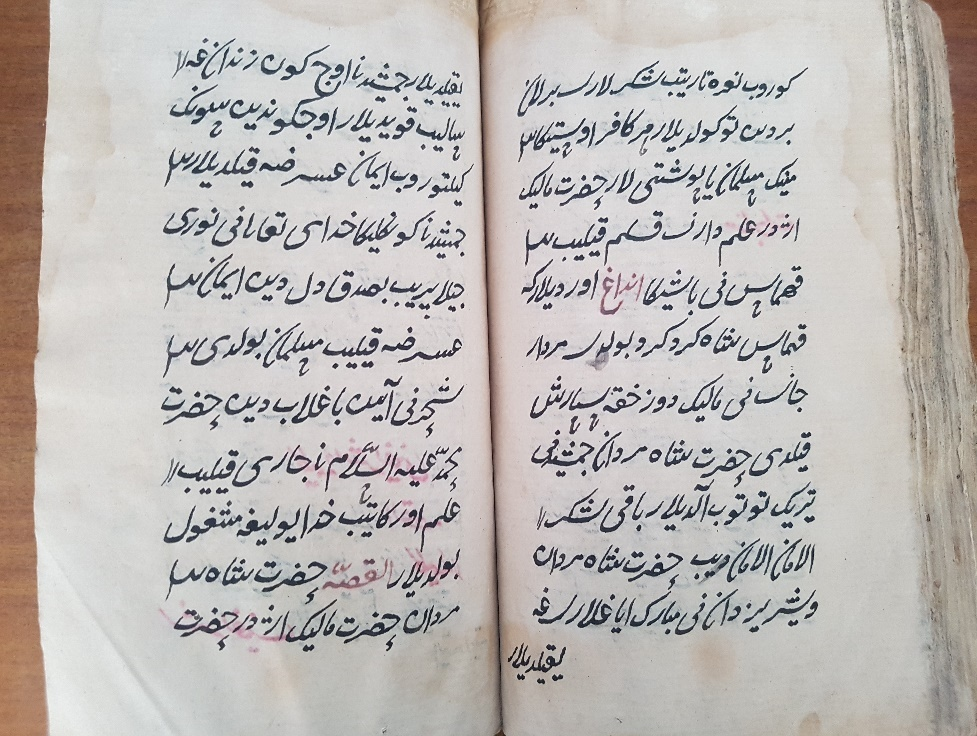 كوروب نعره تارتیب لشكر لارى بیرلان
بردین توكولدیلار هر كافر اوستیكا
مینك مسلمان یابوشتی لار حضرت مالیك
اژدر علم دارنى قلم قیلیب
قهماس نی باشیكا انداغ اوردیلاركه
قهماس شاه كرد كرد بولدى مردار
جانى نی مالیك دوزخقه سپارش
قیلدى حضرت شاه مردان جمشیدنی
تیریك توتوب آلدیلار باقی لشكر
الامان الامان دیب حضرت شاه مردان
وشیر یزدان نی مبارك ایاغلارى غه
یقیلدیلار
یقیلدیلار جمشیدنا اوچ كون زندان غه
سالیب قویدیلار اوچ كوندین سونك
كیلتوروب ایمان عرضه قیلدیلار
جمشیدنا كونكلیكا خداى تعالى نی نورى
جیلا بیریب بصدق دل دین ایمان
عرضه قیلیب مسلمان بولدى
شهرنی آیین باغلاب دین حضرت
محمّد علیه السّلام نا جارى قیلیب
علم اوركاتیب خدا یولیغه مشغول
بولدیلار القصّه حضرت شاه
مردان حضرت مالیك اژدر حضرت